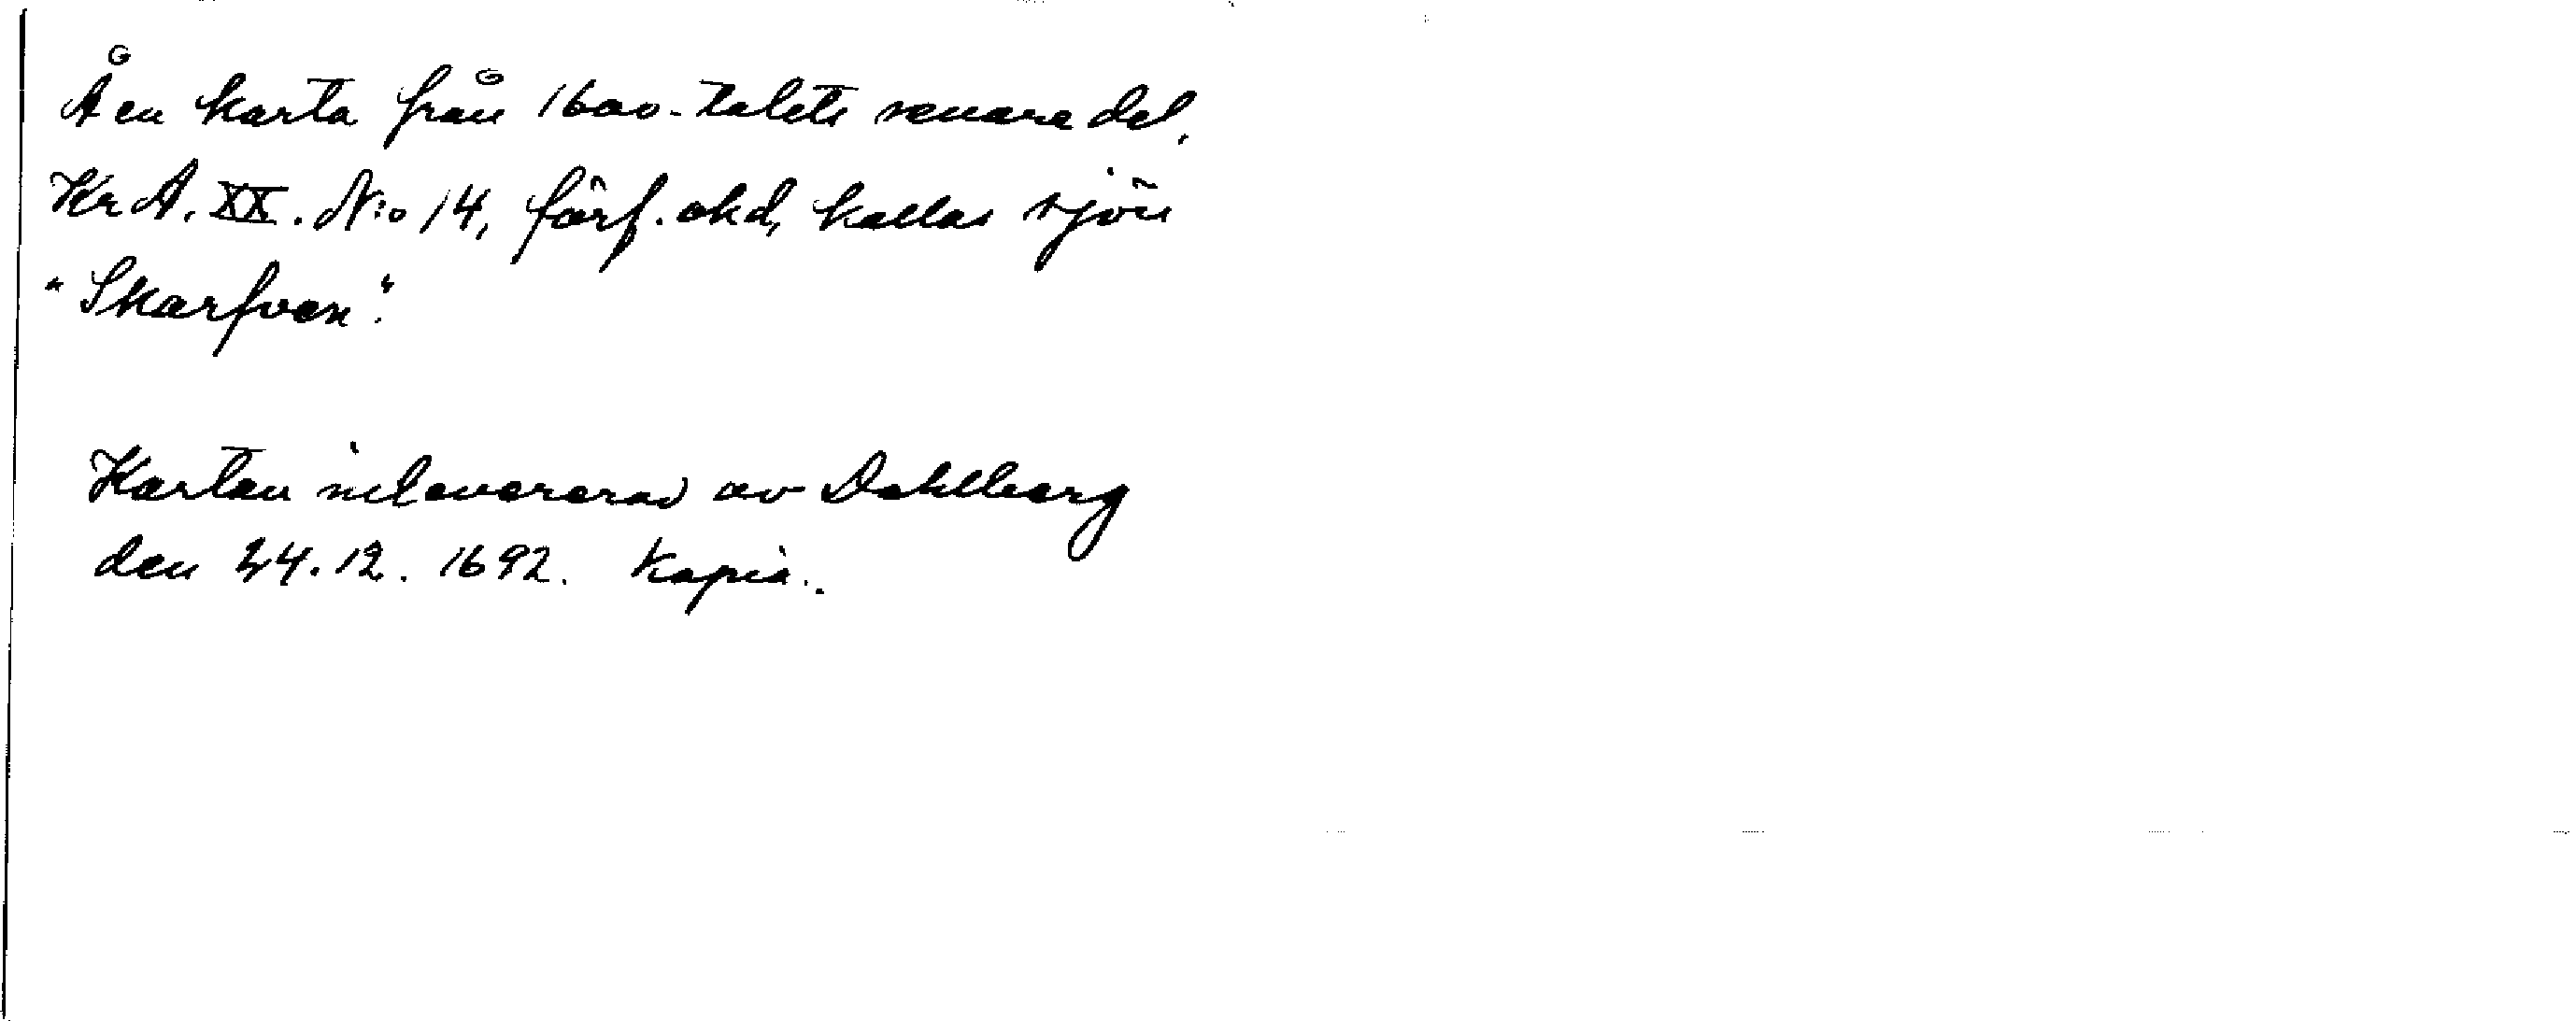 Å en karta från 1600-talets senare del.
Kr A. XX. N:o 14, förf. okd, kallas sjön
"Skarfven".
Kartan inlevererad av Dahlberg
den 24.12. 1692. Kopia.